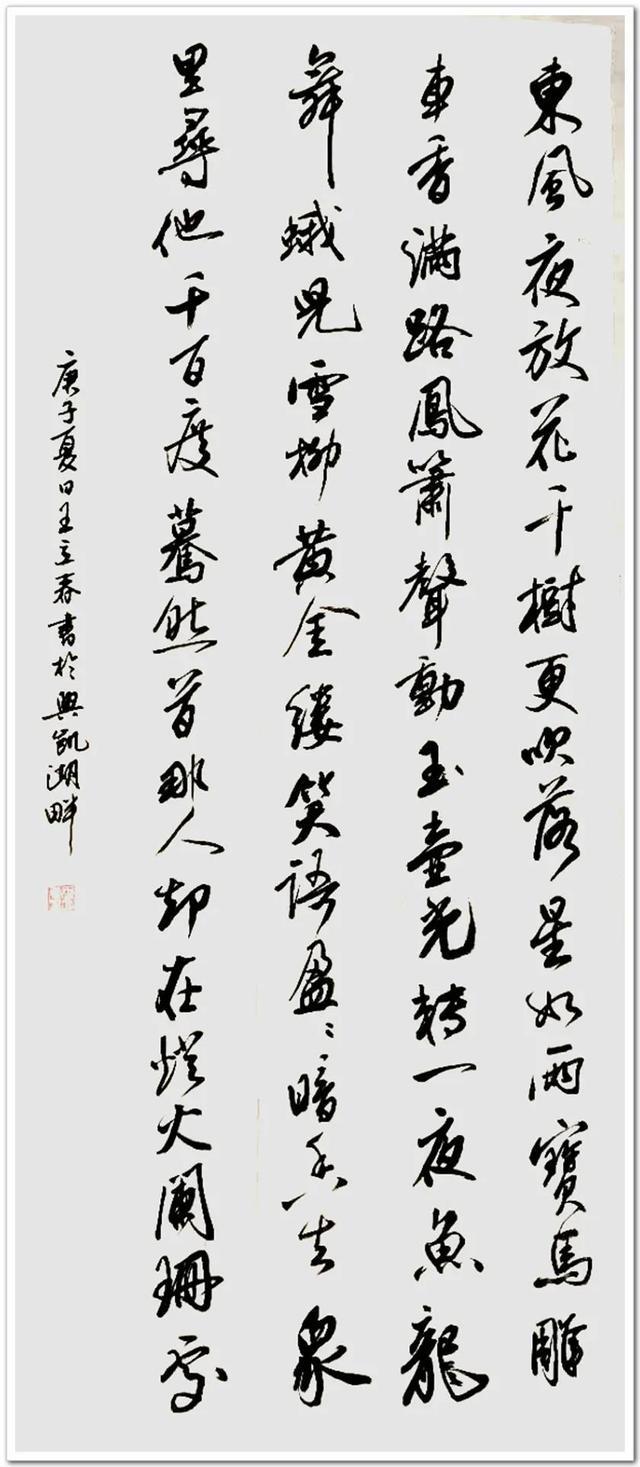 東風夜放花千樹更吹落星如雨寶馬雕
車香滿路鳳簫聲動玉壺光轉一夜魚龍
舞蛾兒雪柳黃金縷笑語盈〻暗香去衆
里尋他千百度驀然首那人却在燈火闌珊處
庚子夏日王立春書於興凱湖畔